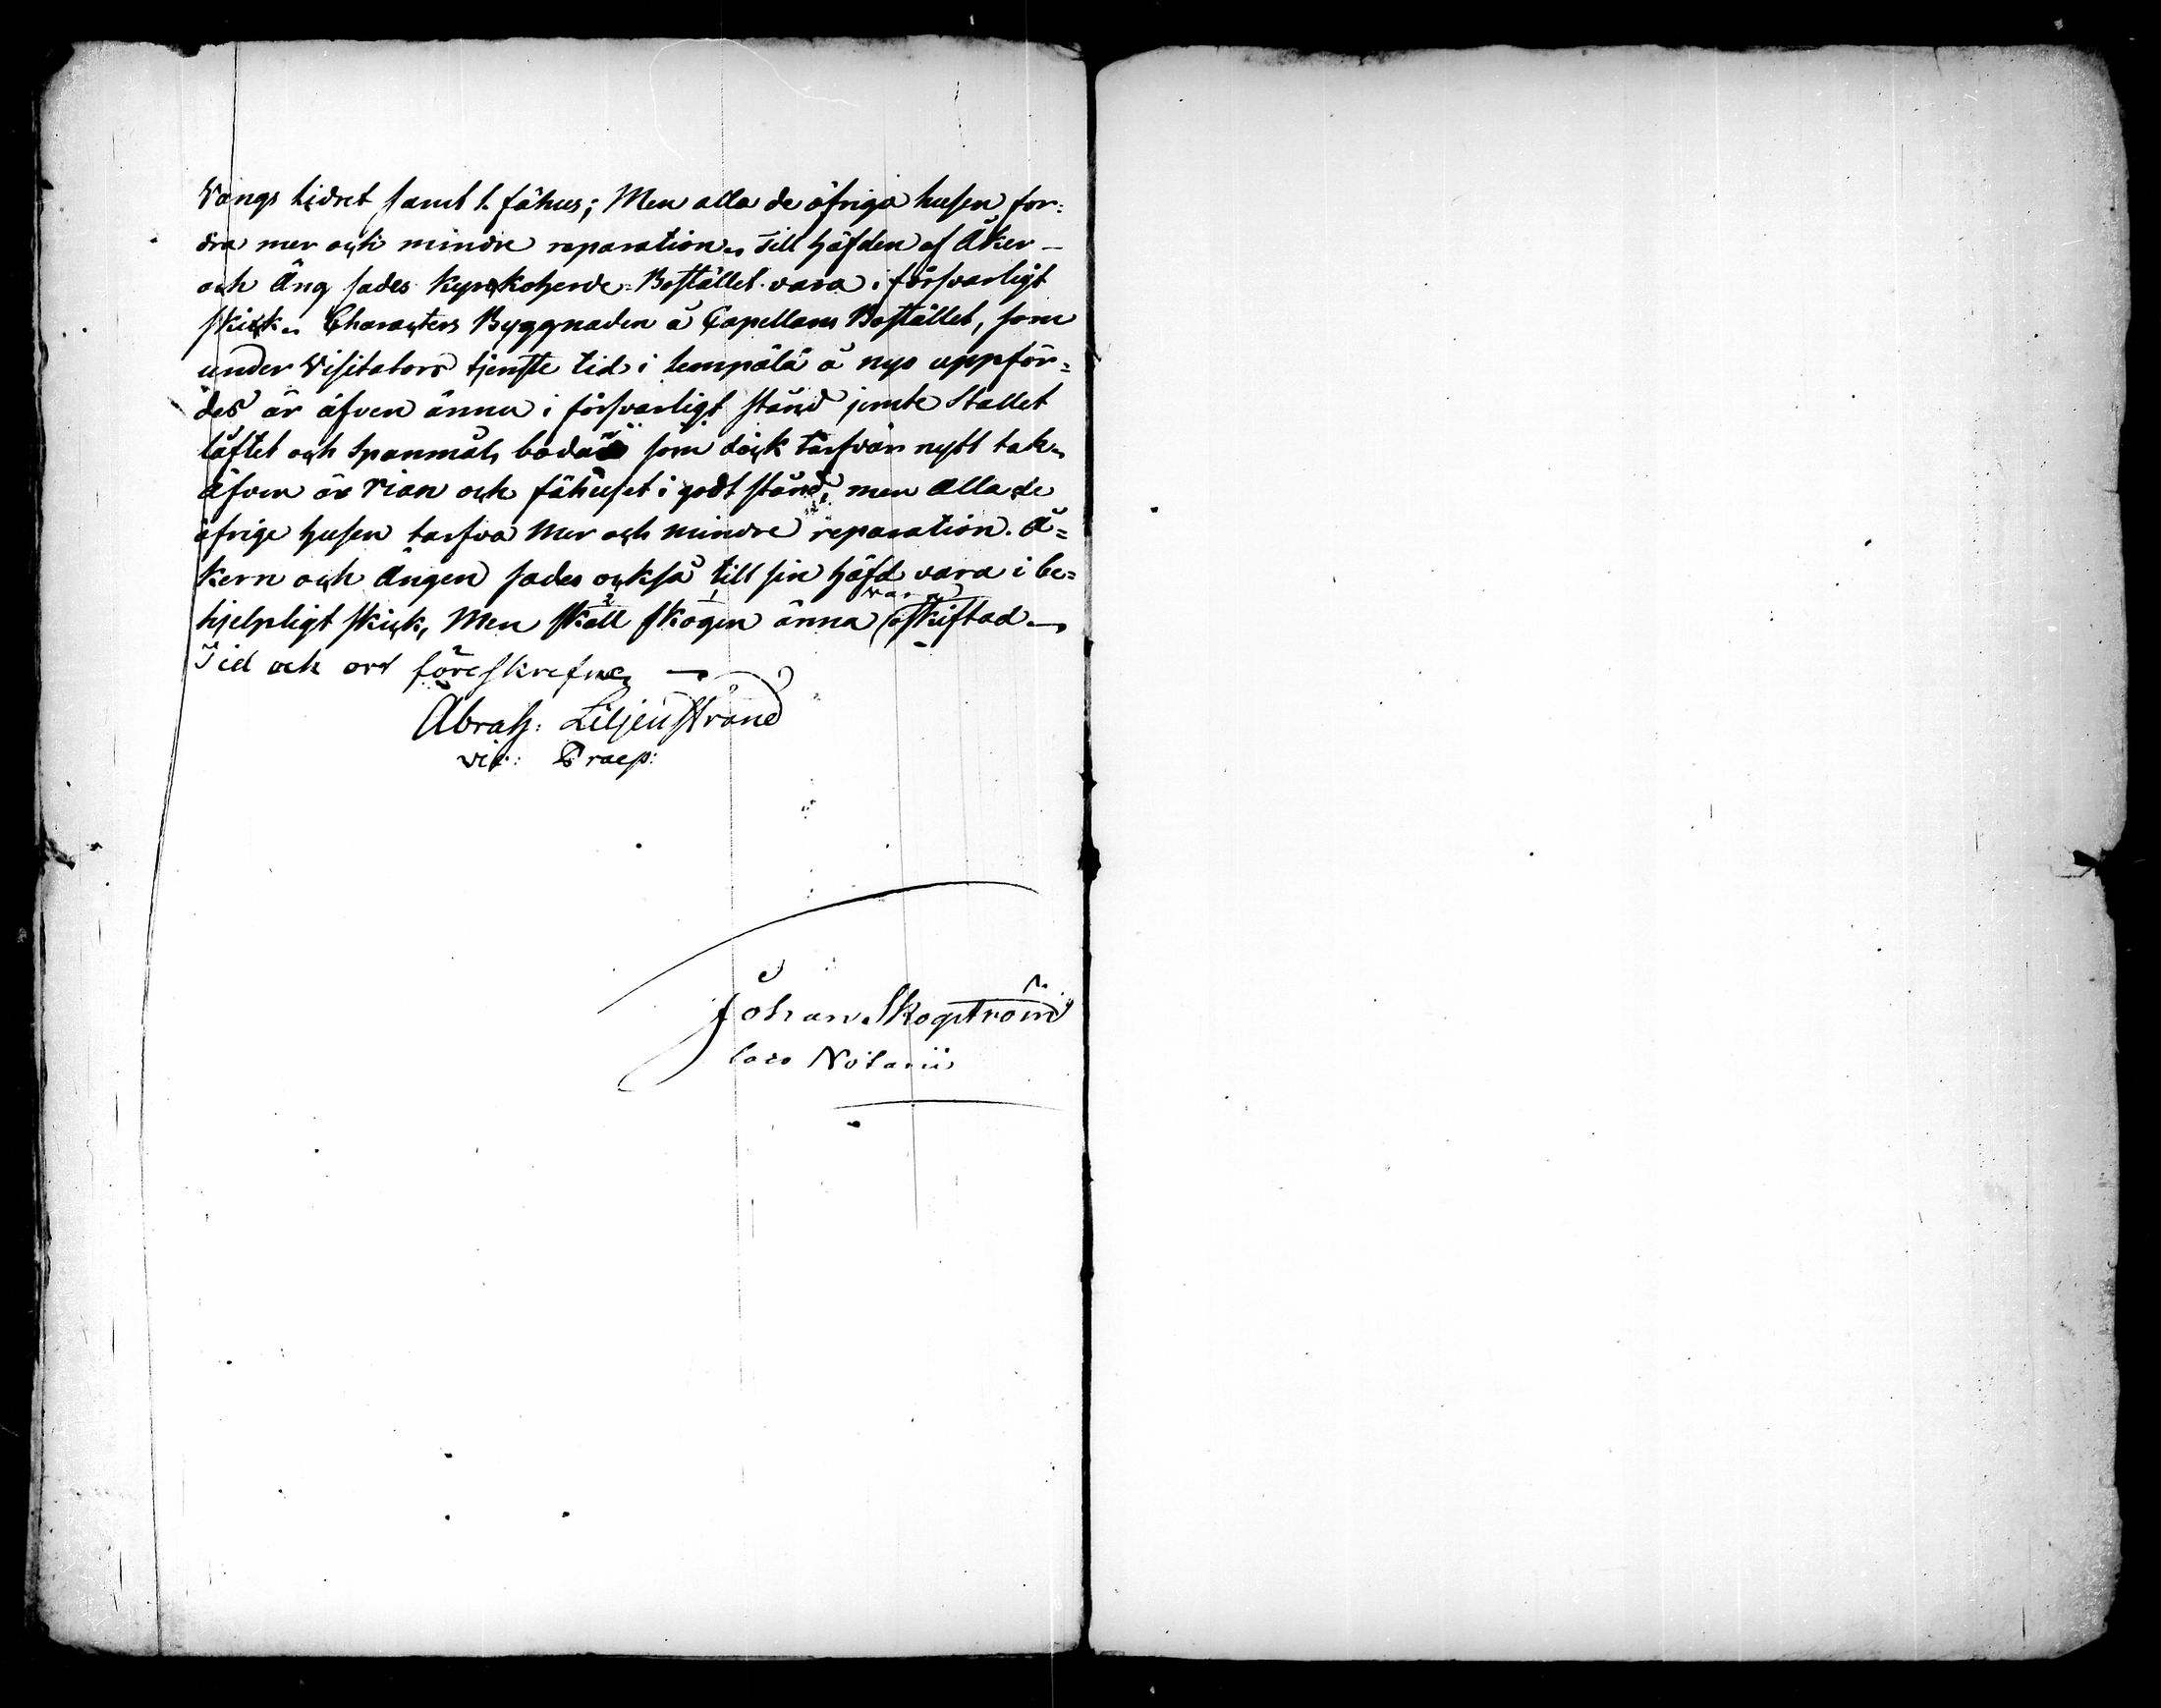 vangs lidret samt 1. fähus; Men alla de öfriga husen for=
dra mer och mindre reparation. Till häfden af Åker
och Äng sades Kyrkoherde=Bostället vara i försvarligt
skick. Characters Byggnaden å Capellans Bostället, som
under Visitators tjenste tid i Lempälä å nyo uppför=
des är äfven ännu i försvarligt stånd jemte Stallet
löftet och Spanmåls boda som dock tarfvar nytt tak.
äfven är rian och fähuset i godt stånd, men alla de
öfrige husen tarfva mer och mindre reparation. Å=
kern och Ängen sades också till sin häfd vara i be=
hjelpligt skick, Men skall skogen ännu vara oskiftad
Tid och ort föreskrefne
Abrah: Liljenstrand
vic: Praep:
Johan Skogström
loco Notarii